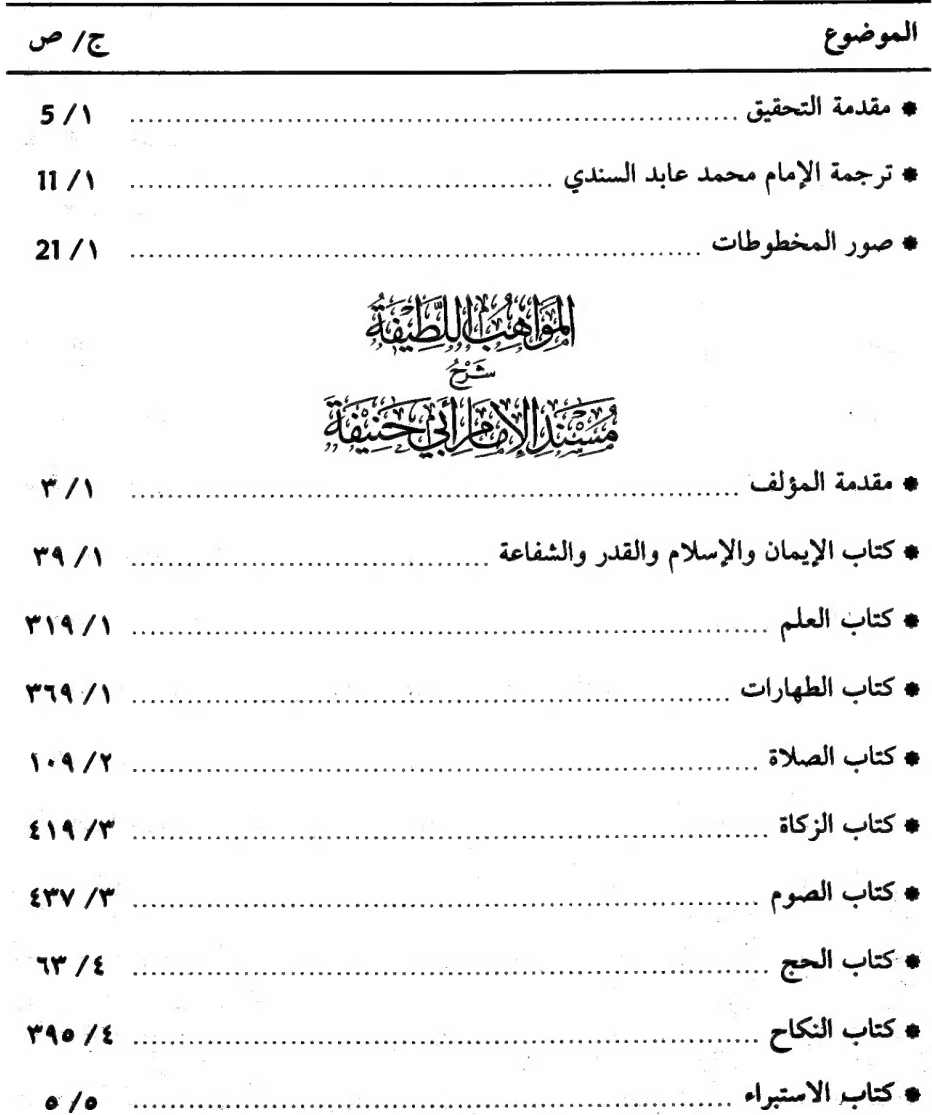 الموضوع ج/ ص
* مقدمة التحقيق ........ ١/ 5
* ترجمة الإمام محمد عابد السندي ........ ١/ 11
* صور المخطوطات ........ ١/ 21
المَوَاهِبُ اللَّطِيفَةُ
شَرْحُ
مُسْنَدِ الإِمَامِ أَبِي حَنِيفَةَ
* مقدمة المؤلف ........ ١/ ٣
* كتاب الإيمان والإسلام والقدر والشفاعة ........ ١/ ٣٩
* كتاب العلم ........ ١/ ٣١٩
* كتاب الطهارات ........ ١/ ٣٦٩
* كتاب الصلاة ........ ٢/ ١٠٩
* كتاب الزكاة ........ ٣/ ٤١٩
* كتاب الصوم ........ ٣/ ٤٣٧
* كتاب الحج ........ ٤/ ٦٣
* كتاب النكاح ........ ٤/ ٣٩٥
* كتاب الاستبراء ........ ٥/ ٥